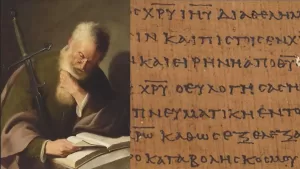 Ϲ ΧΡΥ ΙΗΥ ΔΙΑ ΘΕΛΗΜ
ΙΝ ΚΑΙ ΠΙϹΤΟΙϹ ΕΝ Χ
ΚΑΙ ΕΙΡΗΝΗ ΑΠΟ Θ
ΧΡΥ Ο ΕΥΛΟΓΗϹΑϹ Η
ΠΝΕΥΜΑΤΙΚΗ ΕΝ ΤΟ
ΧΡΩ ΚΑΘΩϹ ΕΞΕΛΕΞΑ
Ο ΚΑΤΑΒΟΛΗϹ ΚΟϹΜΟΥ